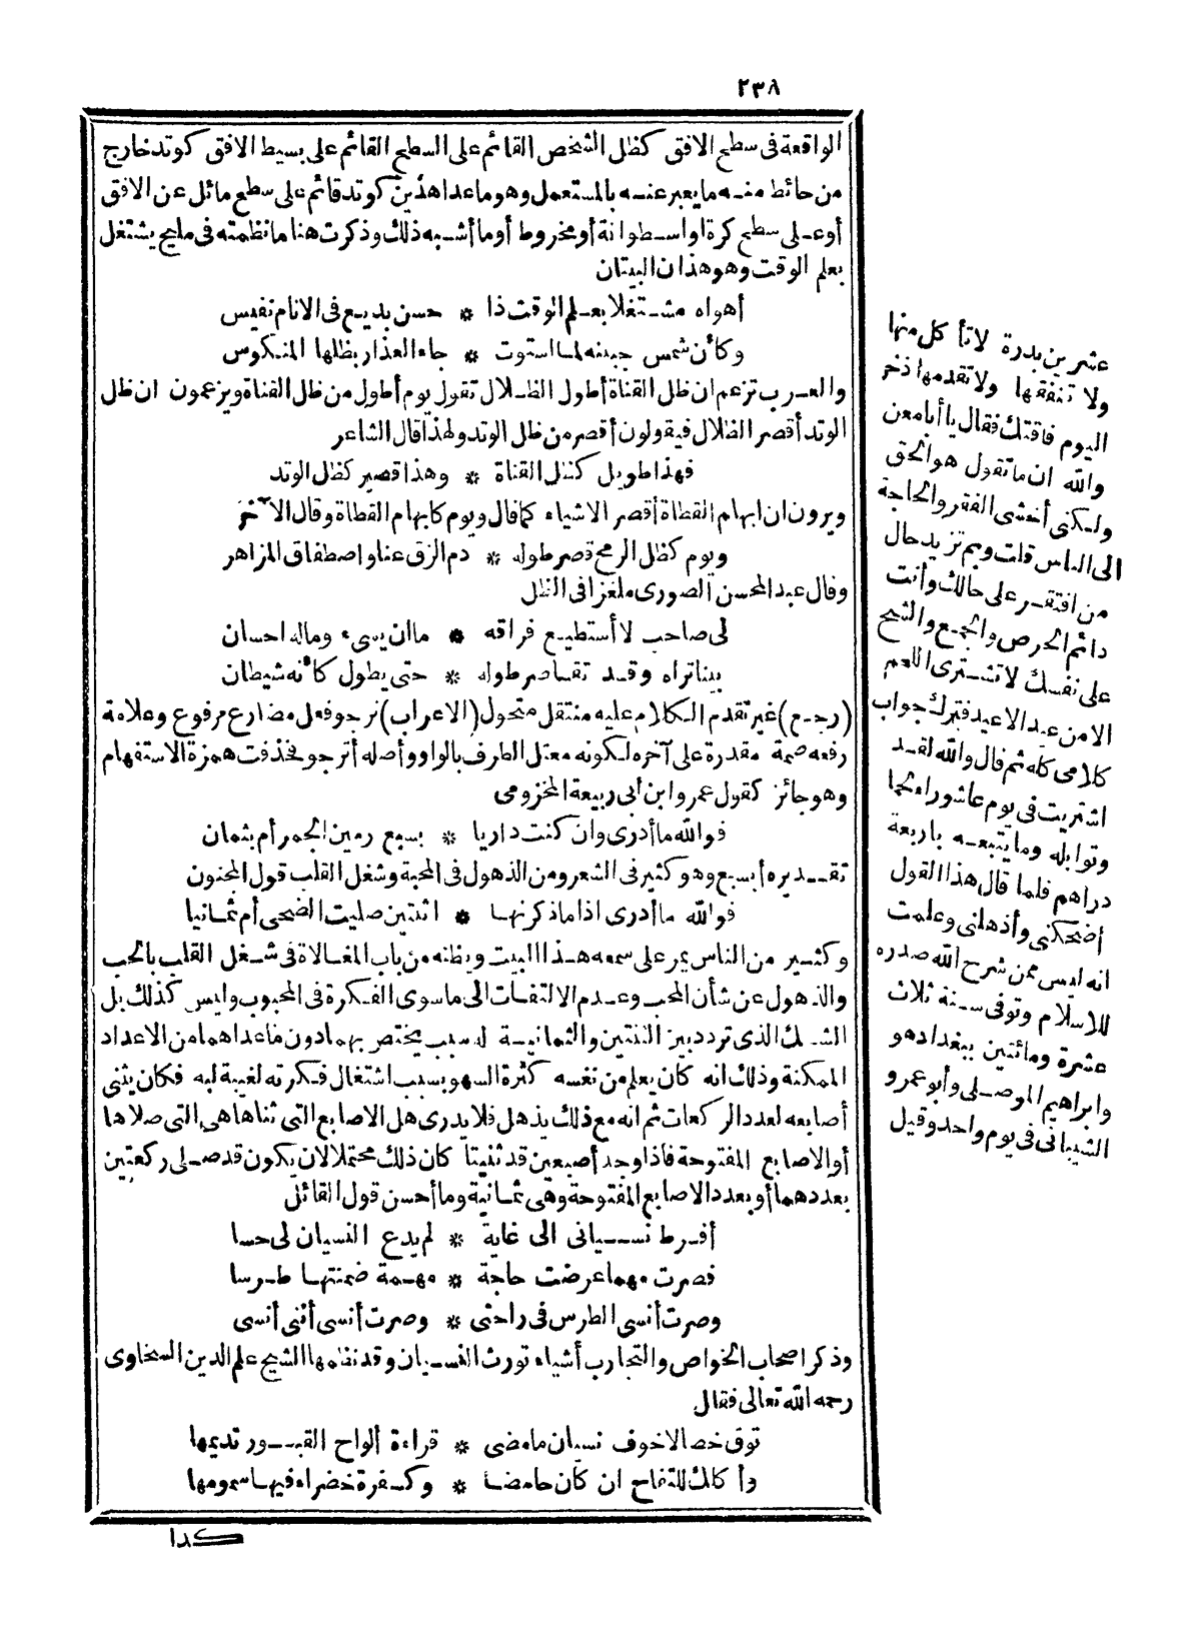 ٢٣٨
الواقعة فى سطح الافق كظل الشخص القائم على السطح القائم على بسيط الافق كوتد خارج
من حائط منه ما يعبر عنه بالمستعمل وهو ماعدا هذين كوتد قائم على سطح مائل عن الافق
أو على سطح كرة او اسطوانة أو مخروط أو ما أشبه ذلك وذكرت هنا ما نظمته فى مليح يشتغل
بعلم الوقت وهو هذان البيتان
أهواه مشتغلا بعلم الوقت ذا * حسن بديع فى الانام نفيس
وكأن شمس جبينه لما استوت * جاء العذار بظلها المنكوس
والعرب تزعم ان ظل القناة أطول الظلال تقول يوم أطول من ظل القناة ويزعمون ان ظل
الوتد أقصر الظلال فيقولون أقصر من ظل الوتد ولهذا قال الشاعر
فهذا طويل كظل القناة * وهذا قصير كظل الوتد
ويرون ان ابهام القطاة أقصر الاشياء كما قال ويوم كابهام القطاة وقال الآخر
ويوم كظل الرمح قصر طوله * دم الزق عنا واصطفاق المزاهر
وقال عبد المحسن الصورى ملغزا فى الظل
لى صاحب لا أستطيع فراقه * ما ان يسىء وماله احسان
بينا تراه وقد تقاصر طوله * حتى يطول كأنه شيطان
(رجع) غير تقدم الكلام عليه منتقل متحول (الاعراب) ترجو فعل مضارع مرفوع وعلامة
رفعه ضمة مقدرة على آخره لكونه معتل الطرف بالواو وأصله أترجو فحذفت همزة الاستفهام
وهو جائز كقول عمرو ابن أبى ربيعة المخزومى
فوالله ما أدرى وان كنت داريا * بسبع رمين الجمر أم بثمان
تقديره أبسبع وهو كثير فى الشعر ومن الذهول فى المحبة وشغل القلب قول المجنون
فوالله ما أدرى اذا ما ذكرتها * اثنتين صليت الضحى أم ثمانيا
وكثير من الناس يمر على سمعه هذا البيت ويظنه من باب المغالاة فى شغل القلب بالحب
والذهول عن شأن المحب وعدم الالتفات الى ماسوى الفكرة فى المحبوب وليس كذلك بل
الشك الذى تردد بين الثنتين والثمانية له سبب يختص بهما دون ماعداهما من الاعداد
الممكنة وذلك انه كان يعلم من نفسه كثرة السهو بسبب اشتغال فكرته لغيبة لبه فكان يثنى
أصابعه لعدد الركعات ثم انه مع ذلك يذهل فلا يدرى هل الاصابع التى ثناها هى التى صلاها
أو الاصابع المفتوحة فاذا وجد أصبعين قد ثنيتا كان ذلك محتملا لان يكون قد صلى ركعتين
بعددهما أو بعدد الاصابع المفتوحة وهى ثمانية وما أحسن قول القائل
أفرط نسيانى الى غاية * لم يدع النسيان لى حسا
فصرت مهما عرضت حاجة * مهمة ضمنتها طرسا
وصرت أنسى الطرس فى راحتى * وصرت أنسى أننى أنسى
وذكر اصحاب الخواص والتجارب أشياء تورث النسيان وقد نظمها الشيخ علم الدين السخاوى
رحمه الله تعالى فقال
توق خصالا خوف نسيان مامضى * قراءة ألواح القبور تديمها
وأكلك للتفاح ان كان حامضا * وكسفرة خضراء فيها سمومها
كذا
عشرين بدرة لا تأكل منها
ولا تنفقها ولا تقدمها ذخر
اليوم فاقتك فقال يا أبا معن
والله ان ما تقول هو الحق
ولكنى أخشى الفقر والحاجة
الى الناس قلت وبم تزيد حال
من افتقر على حالك وأنت
دائم الحرص والجمع والشح
على نفسك لا تشترى اللحم
الا من عيد الا عيد فترك جواب
كلامى كله ثم قال والله لقد
اشتريت فى يوم عاشوراء لحما
وتوابله وما يتبعه باربعة
دراهم فلما قال هذا القول
أضحكنى وأذهلنى وعلمت
انه ليس ممن شرح الله صدره
للاسلام وتوفى سنة ثلاث
عشرة ومائتين ببغداد هو
وابراهيم الموصلى وأبو عمرو
الشيبانى فى يوم واحد وقيل